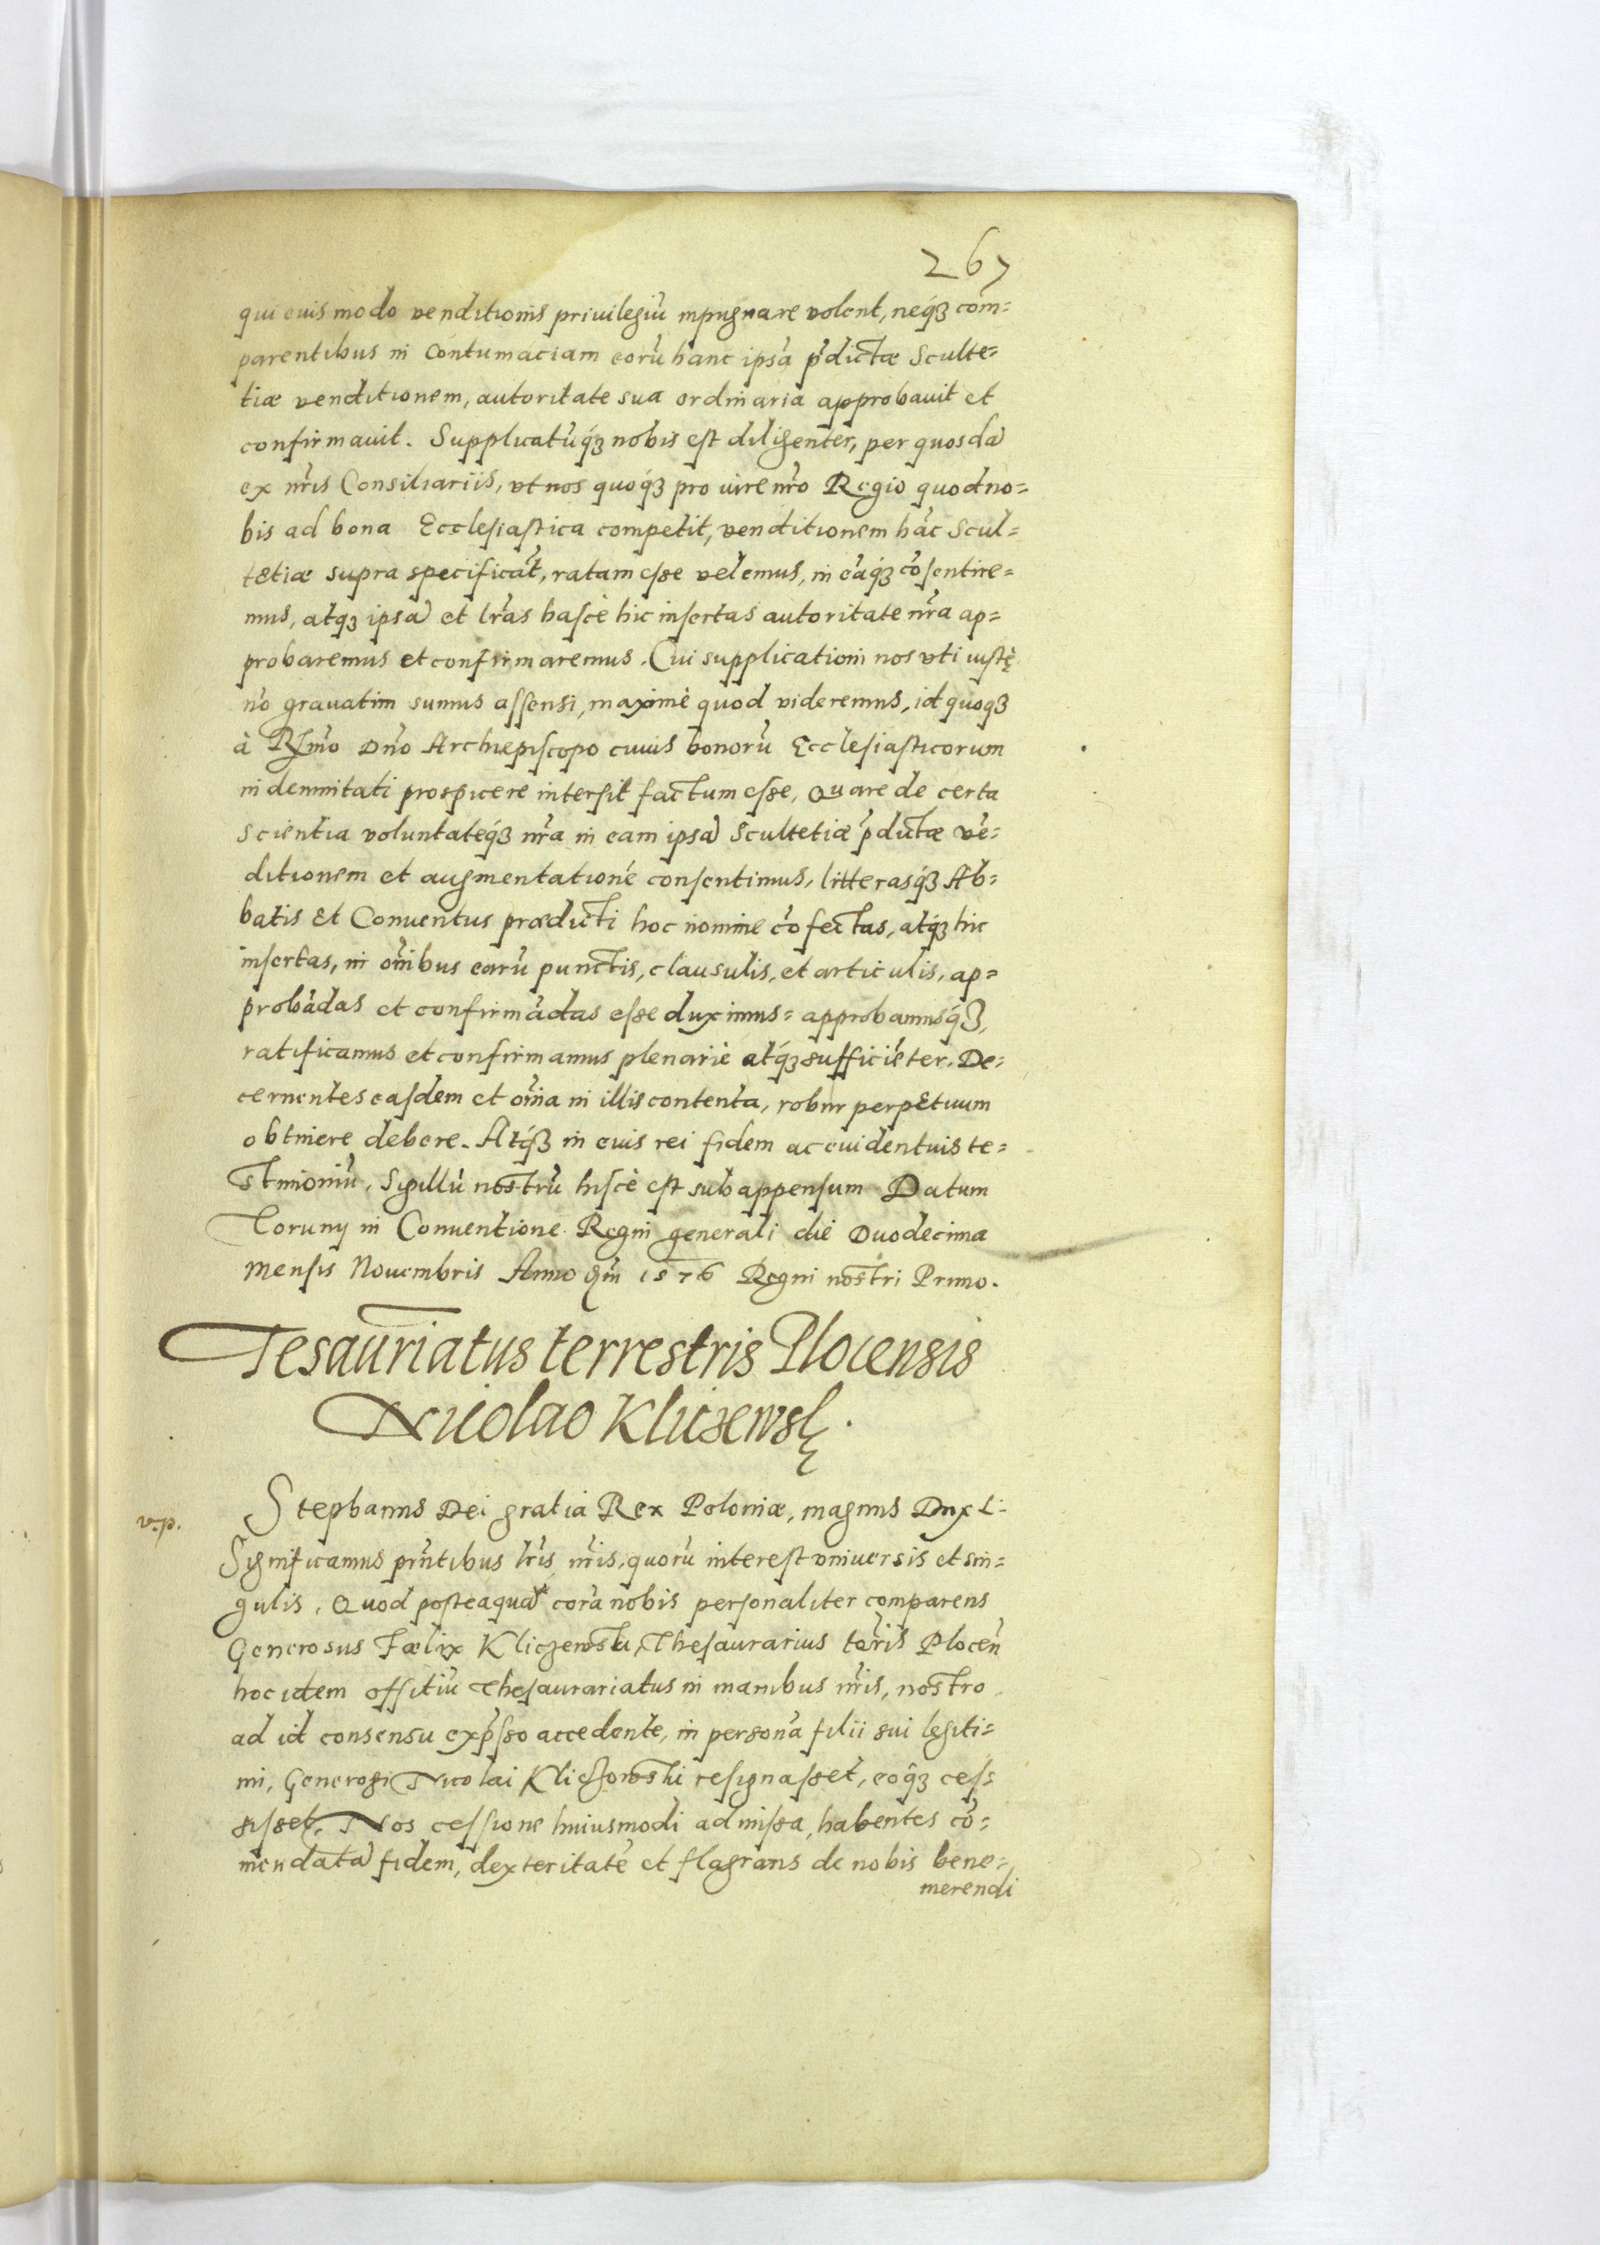 267
qui euis modo venditionis priuilegiũ inpugnare volent, neqʒ com=
parentibus in contumaciam eorũ hanc ipsã p̃dictæ Sculte=
tiæ venditionem, autoritate sua ordinaria approbauit et
confirmauit. Supplicatũqʒ nobis est diligenter, per quosdã
ex nr̃is Consiliariis, vt nos quoqʒ pro iure nr̃o Regio quod no=
bis ad bona Ecclesiastica competit, venditionem hãc Scul=
tetiæ supra specificat̃, ratam esse velemus, in eãqʒ cõsentire=
mus, atqʒ ipsã et lr̃as hasce hic insertas autoritate nr̃a ap=
probaremus et confirmaremus. Cui supplicationi nos vti iustę
nõ grauatim sumus assensi, maximè quod videremus, id quoqʒ
à Rs̃mo Dn̄o Archiepiscopo cuius bonorũ Ecclesiasticorum
indemnitati prospicere intersit factum esse, Quare de certa
scientia voluntateqʒ nr̃a in eam ipsã Scultetiæ p̃dictæ vẽ=
ditionem et augmentationẽ consentimus, litterasqʒ Ab=
batis Et Conuentus prædicti hoc nomine cõfectas, atqʒ hic
insertas, in om̃ibus earũ punctis, clausulis, et articulis, ap=
probãdas et confirmãdas esse duximus= approbamusqʒ,
ratificamus et confirmamus plenariè atqʒ sufficiẽter. De=
cernentes easdem et om̃ia in illis contenta, robur perpetuum
obtinere debere. Atqʒ in euis rei fidem ac euidentius te=
stimoniũ, Sigillũ nostrũ hisce est subappensum Datum
Toruny in Conuentione Regni generali die Duodecima
mensis Nouembris Anno Dm̃ 1576 Regni nostri Primo.
Tesauriatus terrestris Plocensis
Nicolao Kliczewsk.
v.p.
Stephanus Dei gratia Rex Poloniæ, magnus Dux L:
Significamus prñtibus lr̃is nr̃is, quorũ interest vniuersis et sin=
gulis, Quod posteaquã corã nobis personaliter comparens
Generosus Fælix Kliczewski, Thesaurarius terr̃is Plocen̄
hoc idem offitiũ Thesaurariatus in manibus nr̃is, nostro
ad id consensu exp̃sso accedente, in personã filii sui legiti=
mi, Generosi Nicolai Kliczowski resignasset, eoqʒ ces=
sisset. Nos cessione huiusmodi admissa, habentes cõ=
mendatã fidem, dexteritatẽ et flagrans de nobis bene=
merendi